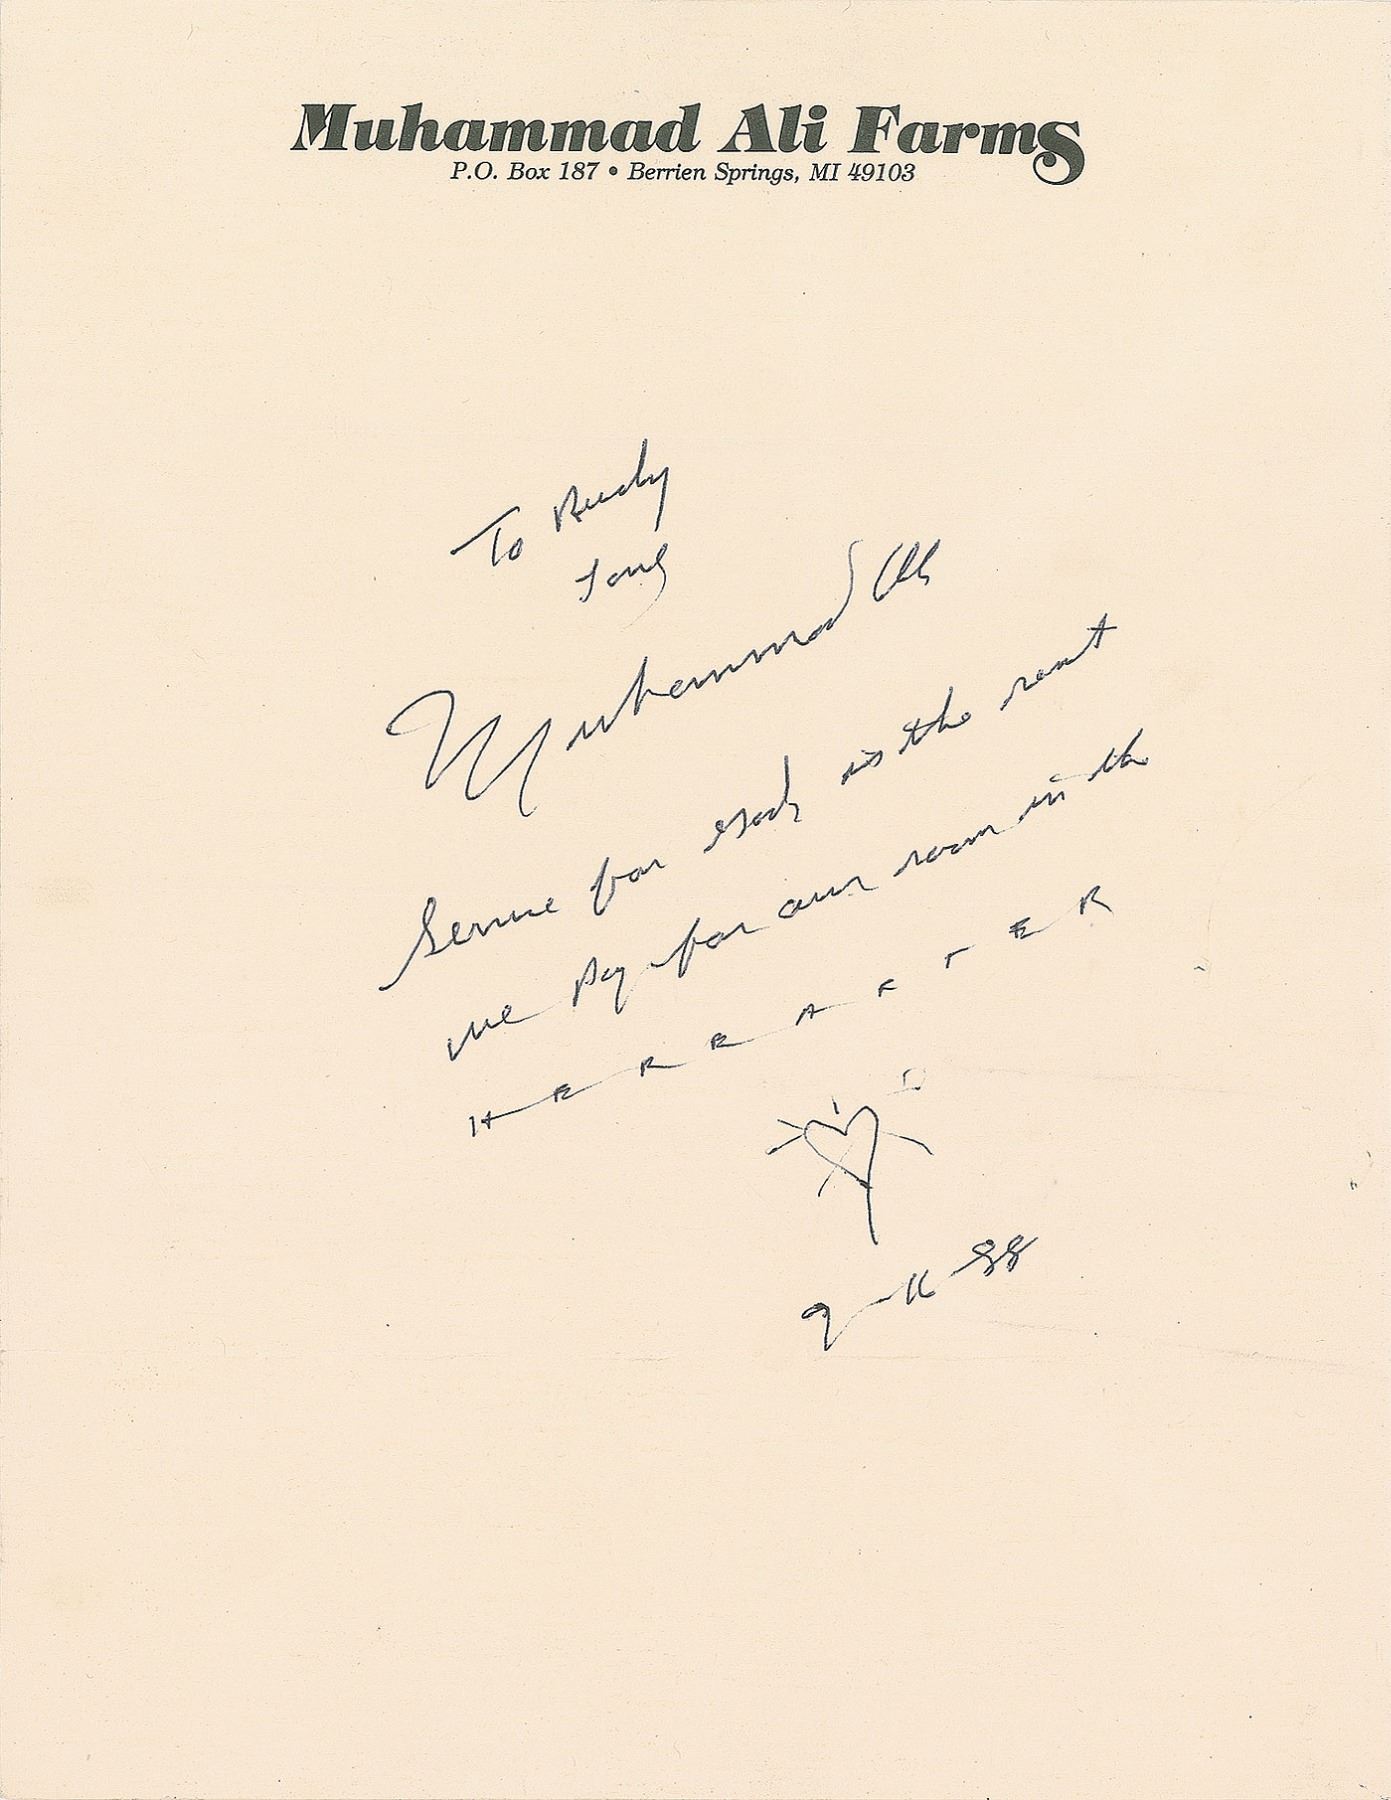 Muhammad Ali Farms
P.O. Box 187 • Berrien Springs, MI 49103
To Rudy
Muhammad Ali
Servie for God is the reant
we Pay for our room in the
H-E-R-E-A-F-T-E-R
9-11-88